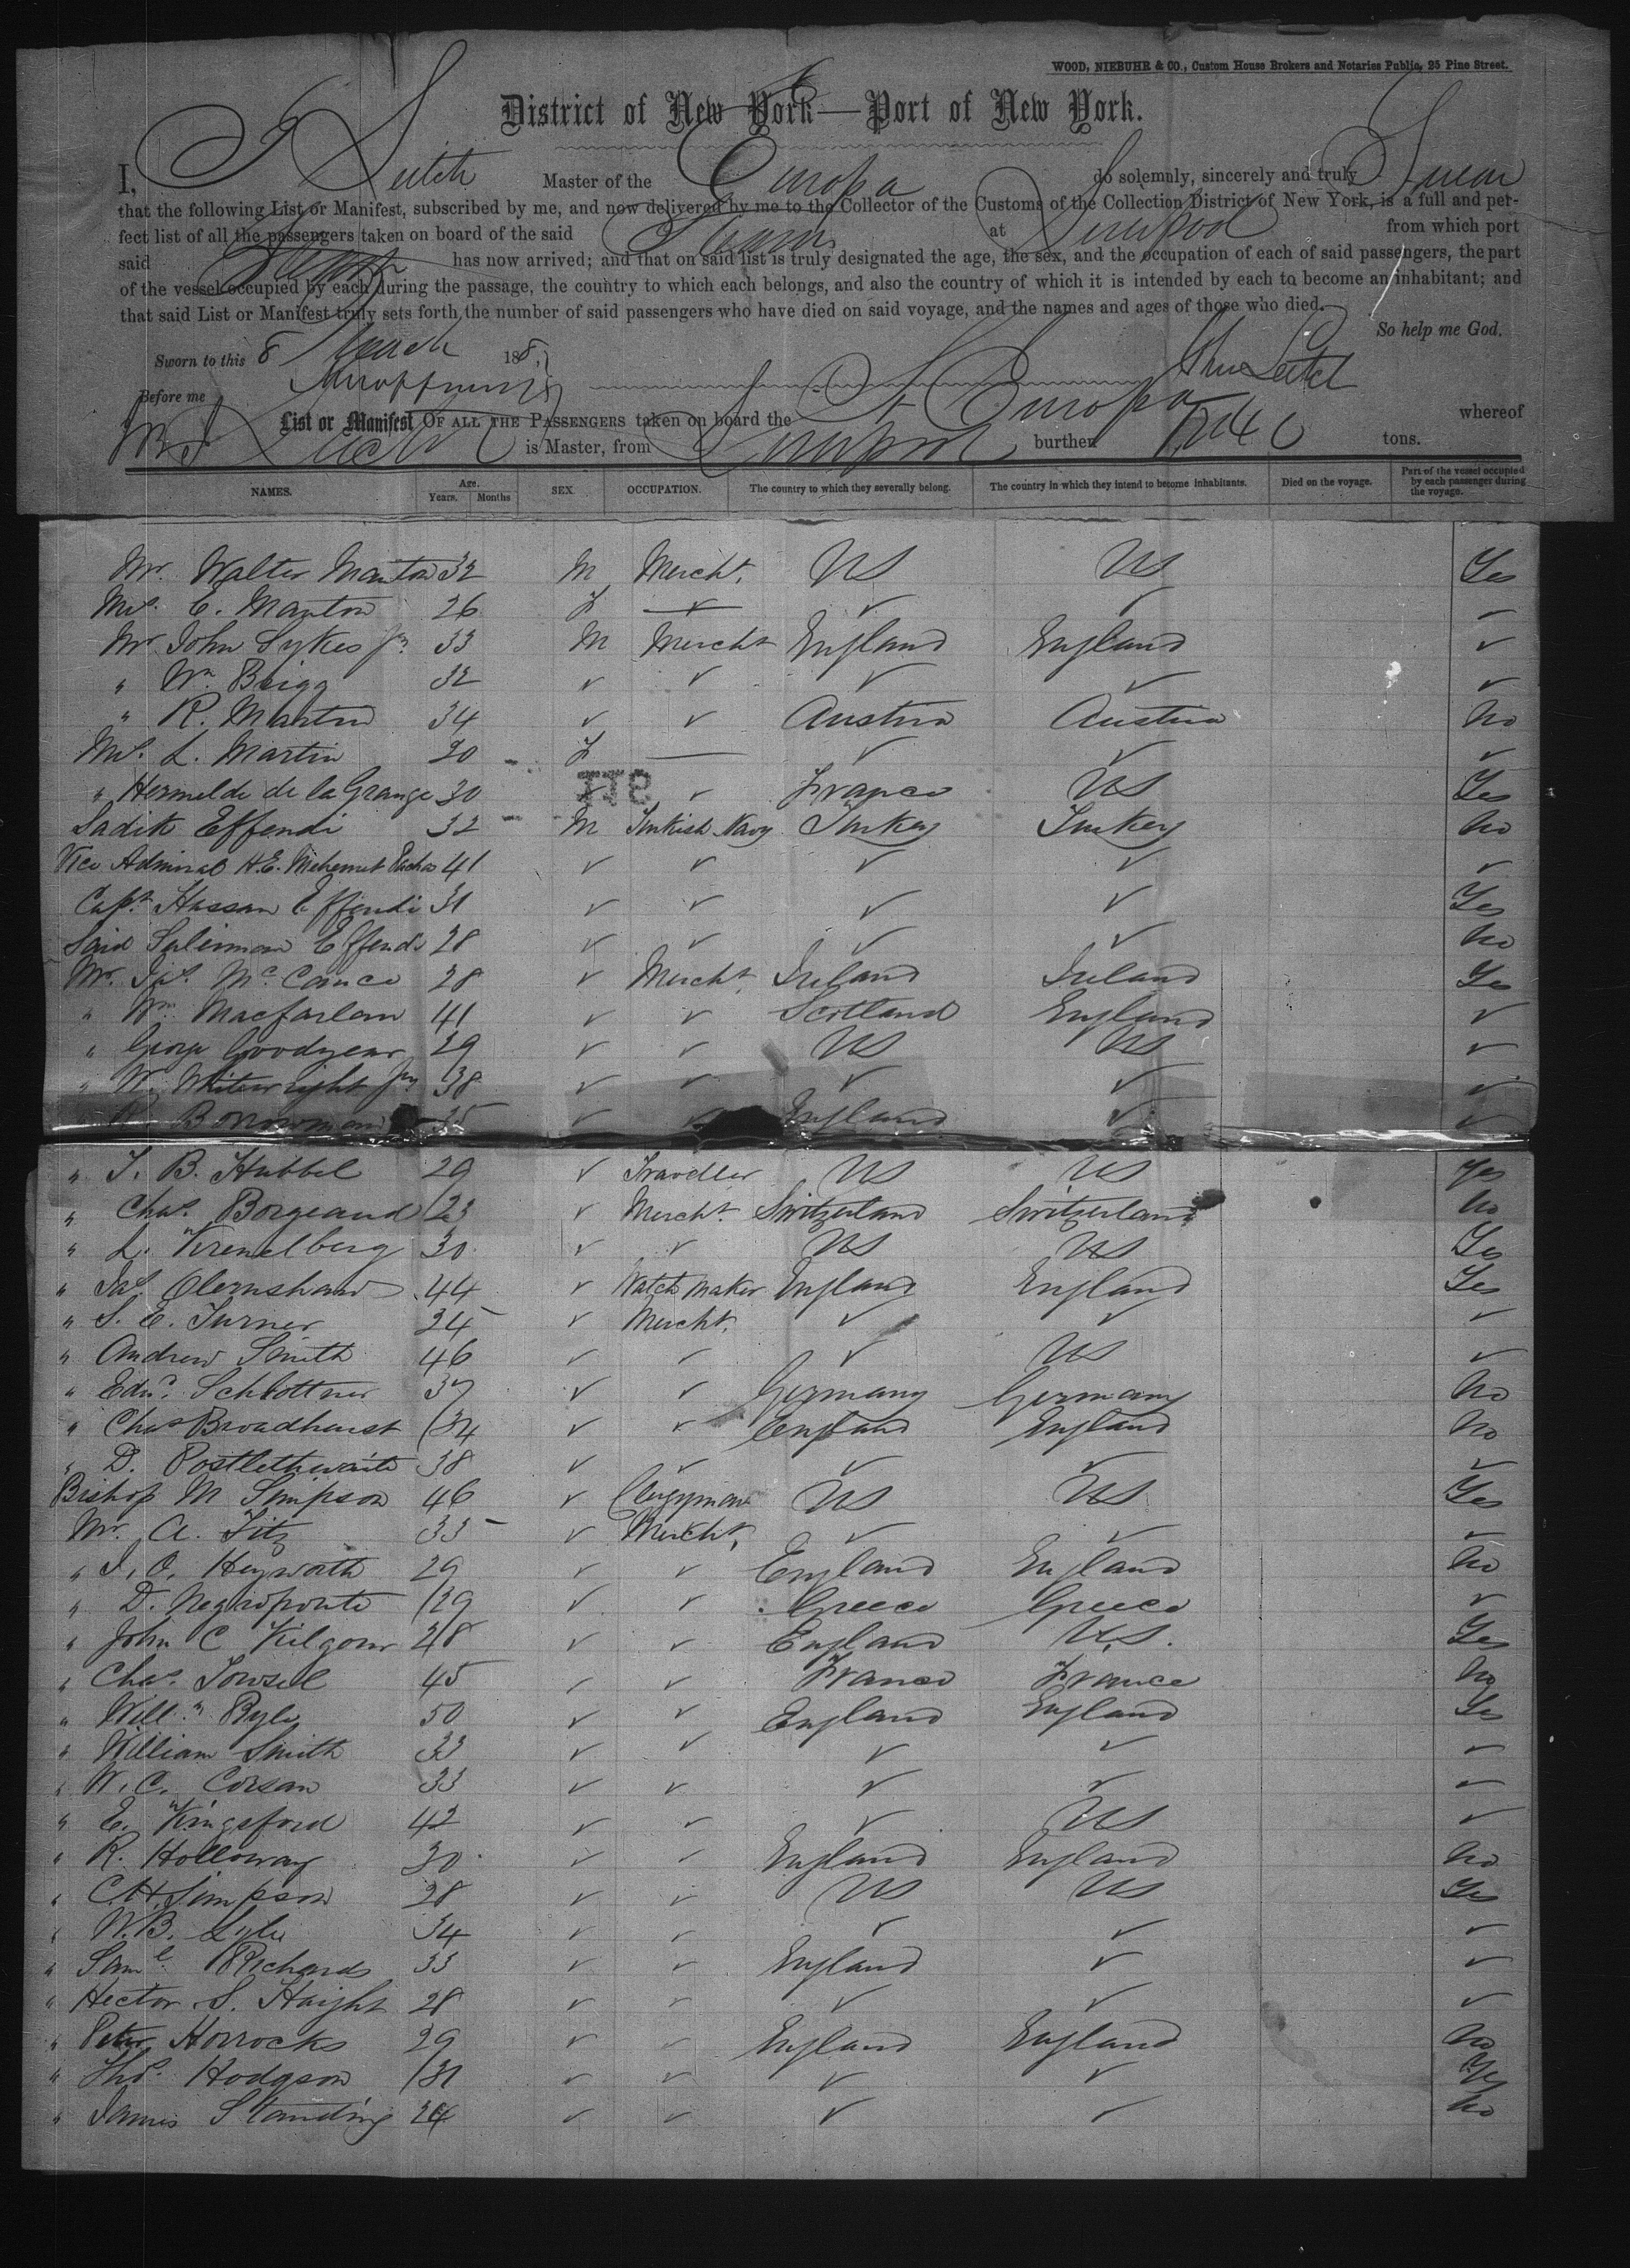 WOOD, NIEBUHR & CO., Custom House Brokers and Notaries Public, 25 Pine Street.
District of New York—Port of New York.
I, J Leitch Master of the Europa do solemnly, sincerely and truly Swear
that the following List or Manifest, subscribed by me, and now delivered by me to the Collector of the Customs of the Collection District of New York, is a full and per-
fect list of all the passengers taken on board of the said Steamer at Liverpool from which port
said has now arrived; and that on said list is truly designated the age, the sex, and the occupation of each of said passengers, the part
of the vessel occupied by each during the passage, the country to which each belongs, and also the country of which it is intended by each to become an inhabitant; and
that said List or Manifest truly sets forth the number of said passengers who have died on said voyage, and the names and ages of those who died.
So help me God.
Sworn to this 8 March 185
John Leitch
Before me
List or Manifest OF ALL THE PASSENGERS taken on board the St Europa whereof
Leitch is Master, from Liverpool burthen tons.
NAMES. Age. Years. Months SEX. OCCUPATION. The country to which they severally belong. The country in which they intend to become inhabitants. Died on the voyage. Part of the vessel occupied by each passenger during the voyage.
Mr. Walter Manton 32 M Mercht. US US Yes
Mrs. E. Manton 26 F — ✓ ✓ ✓
Mr John Sykes Jr. 33 M Mercht England England ✓
" Wm. Brigg 32 ✓ ✓ ✓ ✓ ✓
" R. Martin 34 ✓ ✓ Austria Austria No
Mrs. L. Martin 30 F — ✓ ✓ ✓
" Hermelde de la Grange 30 ✓ ✓ France US Yes
Sadik Effendi 32 M Turkish Navy Turkey Turkey No
Vice Admiral H.E. Mehemet Pacha 41 ✓ ✓ ✓ ✓ ✓
Capt. Hassan Effendi 31 ✓ ✓ ✓ ✓ Yes
Said Suleiman Effendi 28 ✓ ✓ ✓ ✓ No
Mr. Jas. McCance 28 ✓ Mercht. Ireland Ireland Yes
" Wm. Macfarlan 41 ✓ ✓ Scotland England ✓
" George Goodyear 29 ✓ ✓ US US ✓
" W. Whitewright Jr. 38 ✓ ✓ ✓ ✓ ✓
Borrowman 35 ✓ ✓ England ✓ ✓
" J. B. Hubbel 29 ✓ Traveller US US Yes
" Chas. Borgeaud 23 ✓ Mercht. Switzerland Switzerland No
" L. Krenelberg 30 ✓ ✓ US US Yes
" Jas. Olernshaw 44 ✓ Watch maker England England Yes
" S. E. Turner 34 ✓ Mercht. ✓ ✓ ✓
" Andrew Smith 46 ✓ ✓ ✓ US ✓
" Edwd. Schlottner 37 ✓ ✓ Germany Germany No
" Chas Broadhurst 34 ✓ ✓ England England No
" D. Postlethwaite 38 ✓ ✓ ✓ ✓ ✓
Bishop M Simpson 46 ✓ Clergyman US US Yes
Mr. A. Fitz 35 ✓ Mercht. ✓ ✓ ✓
" J. O. Heyworth 29 ✓ ✓ England England No
" D. Negroponte 29 ✓ ✓ Greece Greece ✓
" John C Kilgour 28 ✓ ✓ England U.S. Yes
" Chas. Towsel 45 ✓ ✓ France France No
" Willm Ryle 50 ✓ ✓ England England Yes
" William Smith 33 ✓ ✓ ✓ ✓ ✓
" W. C. Corsan 33 ✓ ✓ ✓ ✓ ✓
" E. Kingsford 42 ✓ ✓ ✓ US ✓
" R. Holloway 30 ✓ ✓ England England No
" C.H. Simpson 28 ✓ ✓ US US Yes
" W.B. Lyle 34 ✓ ✓ ✓ ✓ ✓
" Saml. Richards 33 ✓ ✓ England ✓ ✓
" Hector S. Haight 28 ✓ ✓ ✓ ✓ ✓
" Peter Horrocks 29 ✓ ✓ England England No
" Thos. Hodgson 31 ✓ ✓ ✓ ✓ Yes
" James Standing 24 ✓ ✓ ✓ ✓ No